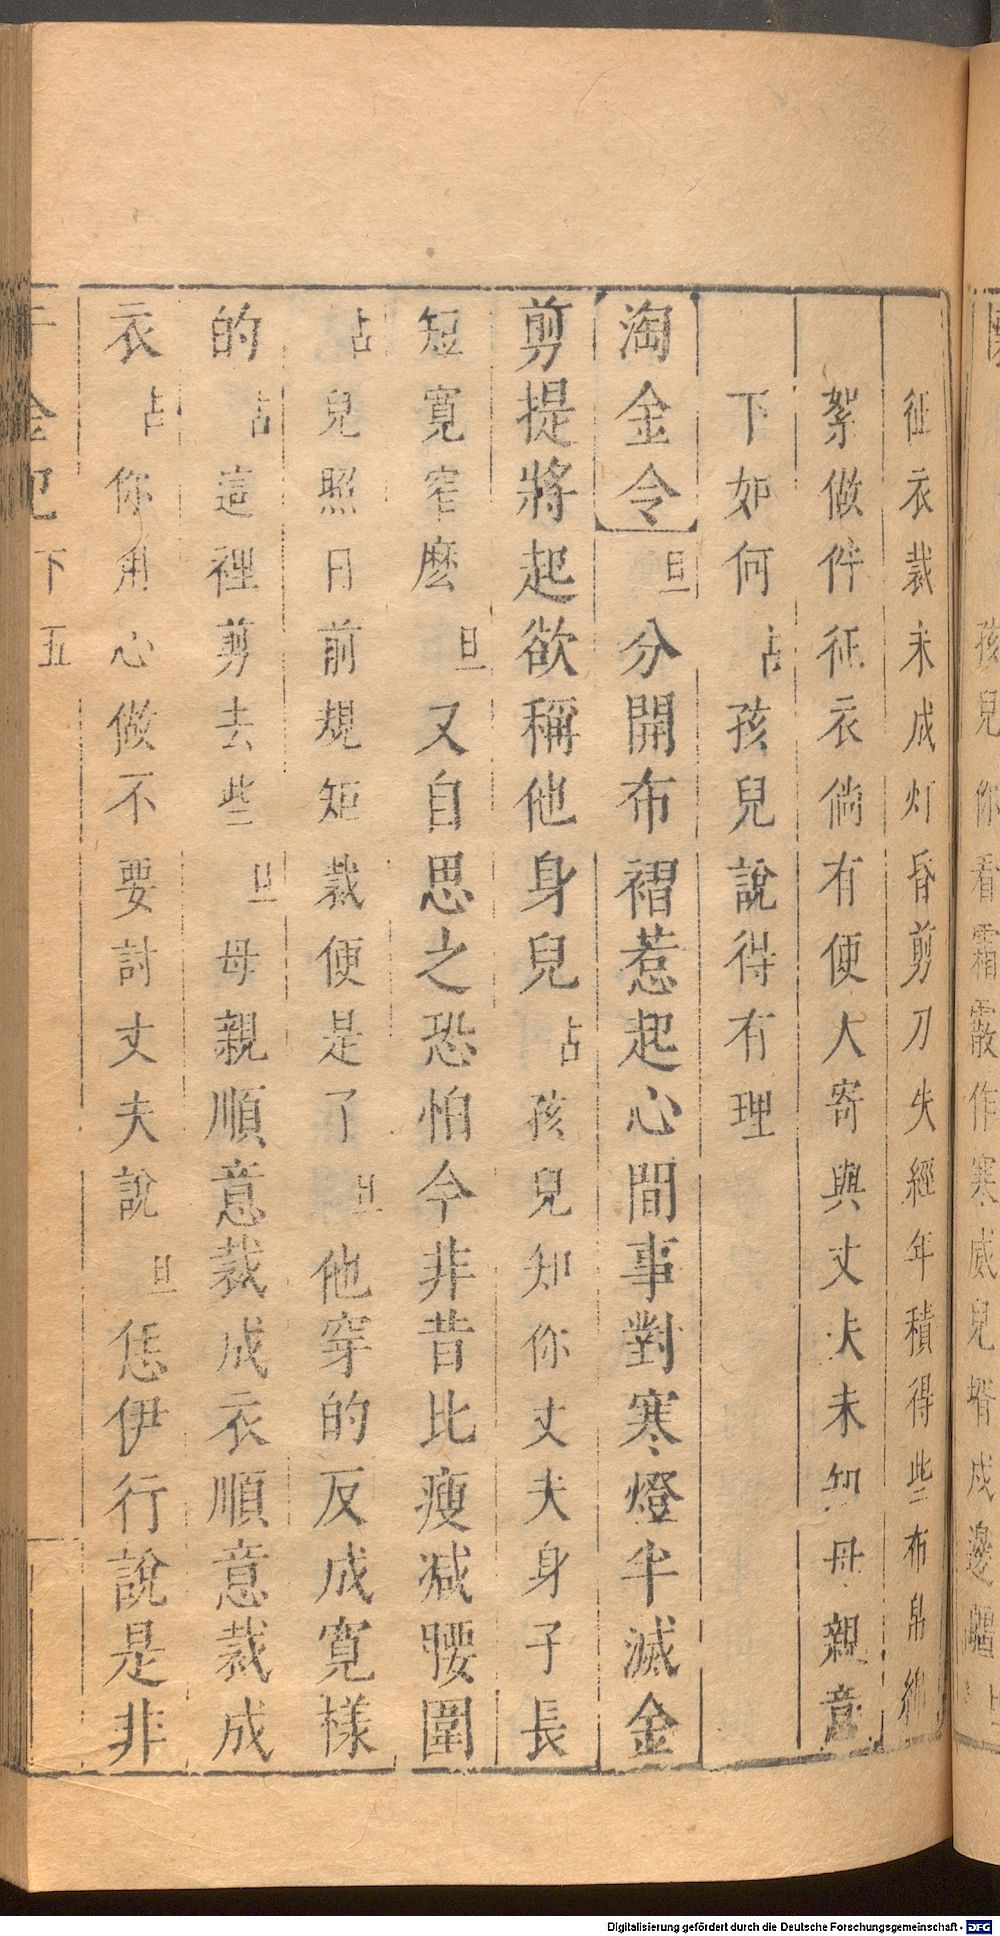 孩兒你看霜霰作寒威兒壻戍邊疆
征衣裁未成灯昏剪刀失經年積得些布帛綿
絮做件征衣倘有便人寄與丈夫未知母親意
下如何占孩兒說得有理
淘金令旦分開布褶惹起心間事對寒燈半滅金
剪提將起欲稱他身兒占孩兒知你丈夫身子長
短寬窄麽旦又自思之恐怕今非昔比瘦减腰圍
占兒照日前規矩裁便是了旦他穿的反成寬樣
的占這裡剪去些旦母親順意裁成衣順意裁成
衣占你用心做不要討丈夫說旦恁伊行說是非
千金記下五
Digitalisierung gefördert durch die Deutsche Forschungsgemeinschaft - DFG